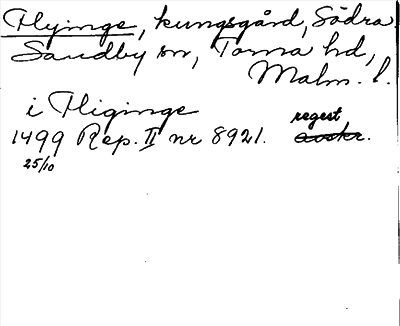 Flyinge, kungsgård, Södra
Sandby sn, Torna hd,
Malm. l.
i Fliginge
regest
1499 Rep. II nr 8921. avskr.
25/10